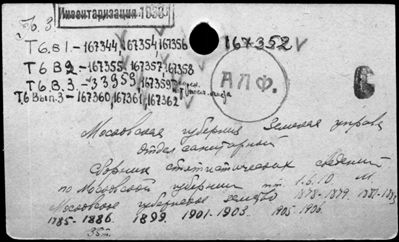 Инвентаризация 1938г.
Т6.в1.-167344, 167354, 167356
167352
Т6 В2.-167355, 167357, 167358
Т6.В.3.-33959, 167359
Т6 Вып.3-167360, 167361, 167362
А П Ф.
Московская губерния Земская управа
отдел санитарный
Сборник статистических сведений
по Московской губернии тт 1.6.10. М
Московское губернское земство 1878-1879. 1882-1883
1885-1886. 1899. 1901-1903. 1905-1906.
35т.